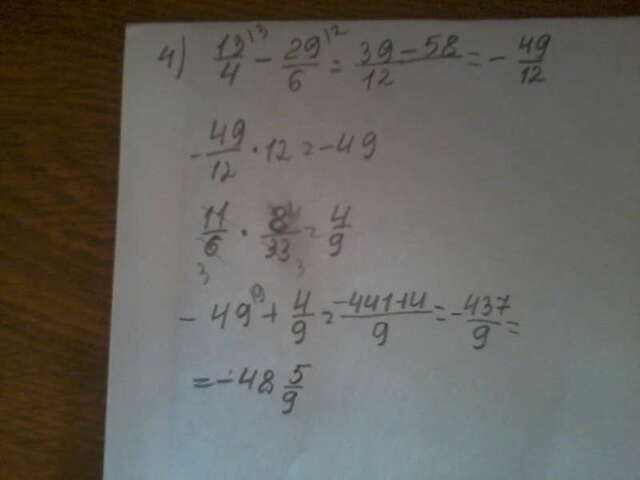 4) 13/4 ^3 - 29/6 ^2 = 39-58/12 = - 49/12
- 49/12 · 12 = -49
11/6 3 · 8 4/33 3 = 4/9
- 49 ^9 + 4/9 = -441+4/9 = - 437/9 =
= -48 5/9